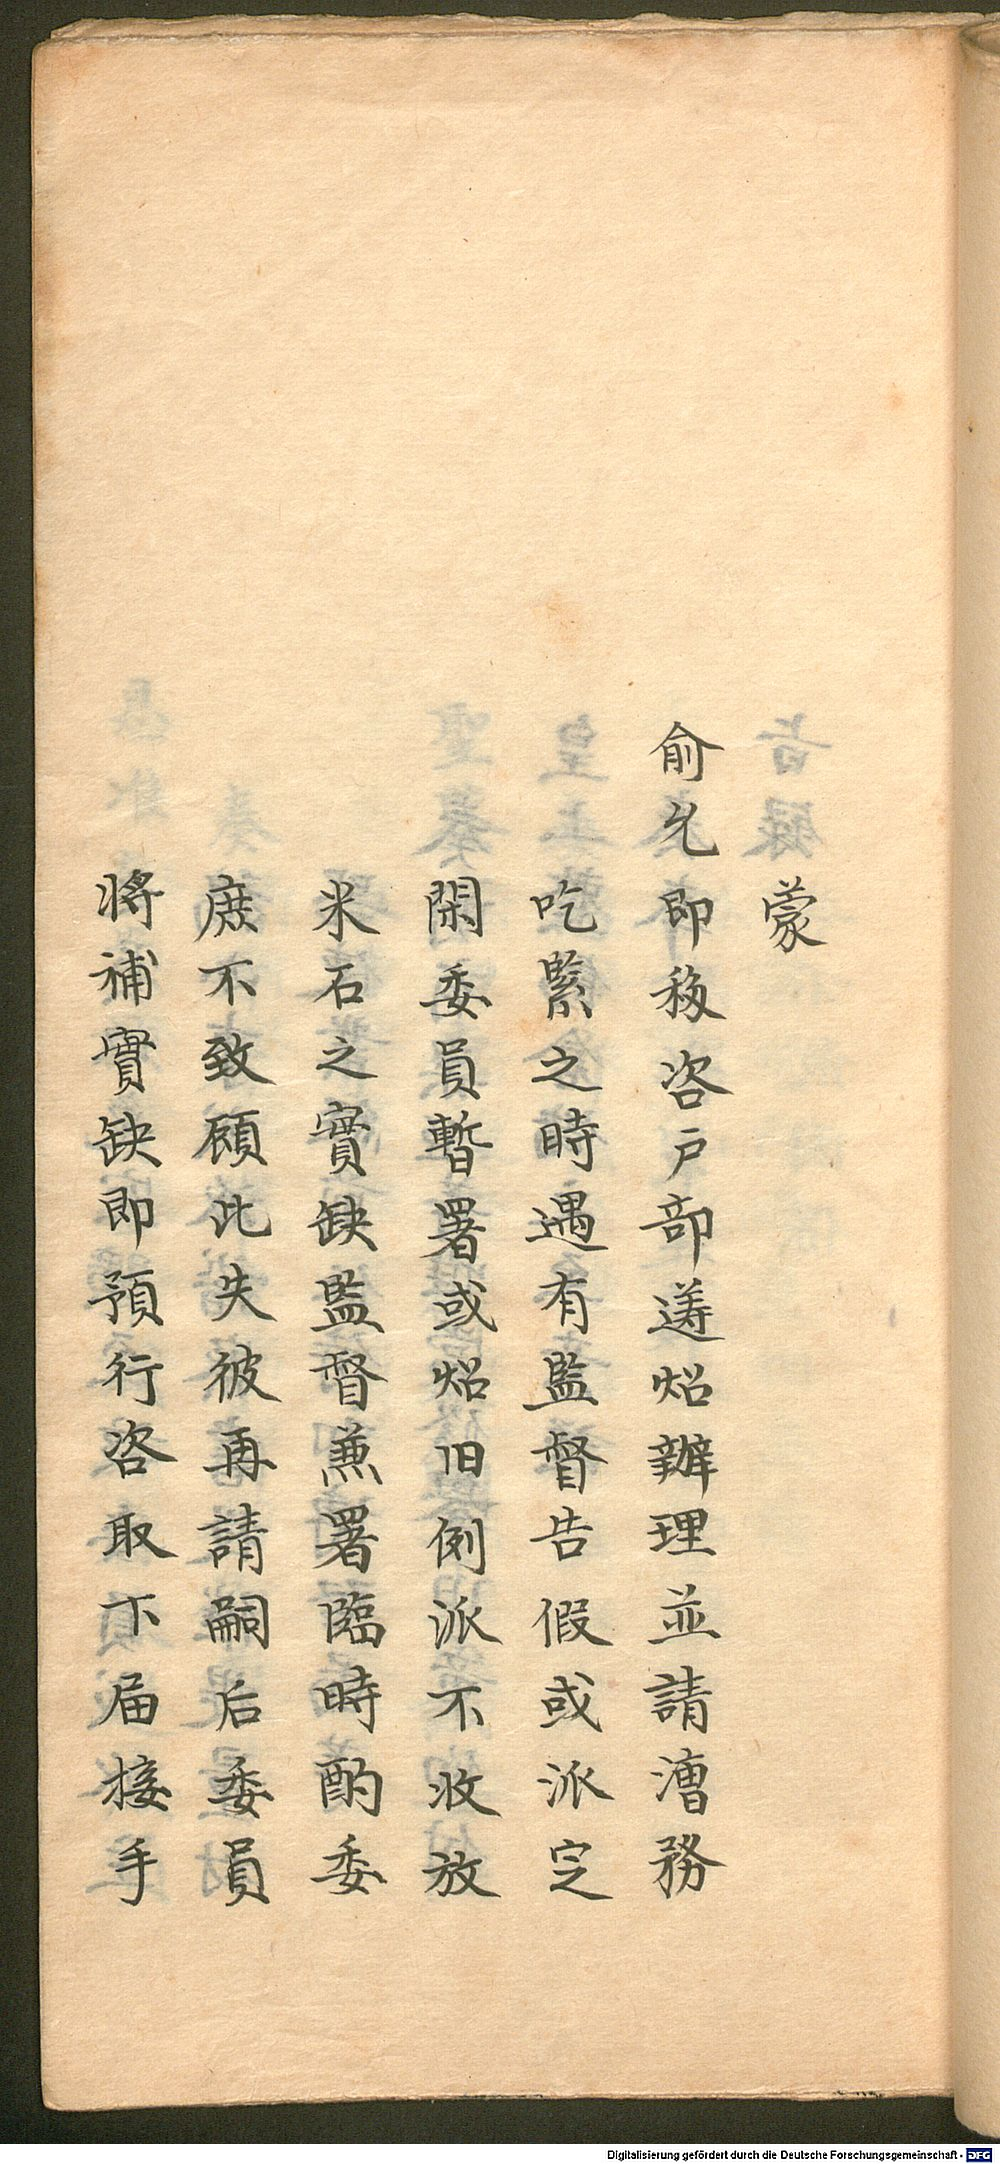 蒙
俞允即移咨户部遵炤辦理並請漕務
吃緊之時遇有監督告假或派定
閑委員暫署或炤旧例派不收放
米石之實缺監督兼署臨時酌委
庶不致顧此失彼再請嗣后委員
將補實缺即預行咨取下屆接手
Digitalisierung gefördert durch die Deutsche Forschungsgemeinschaft - DFG